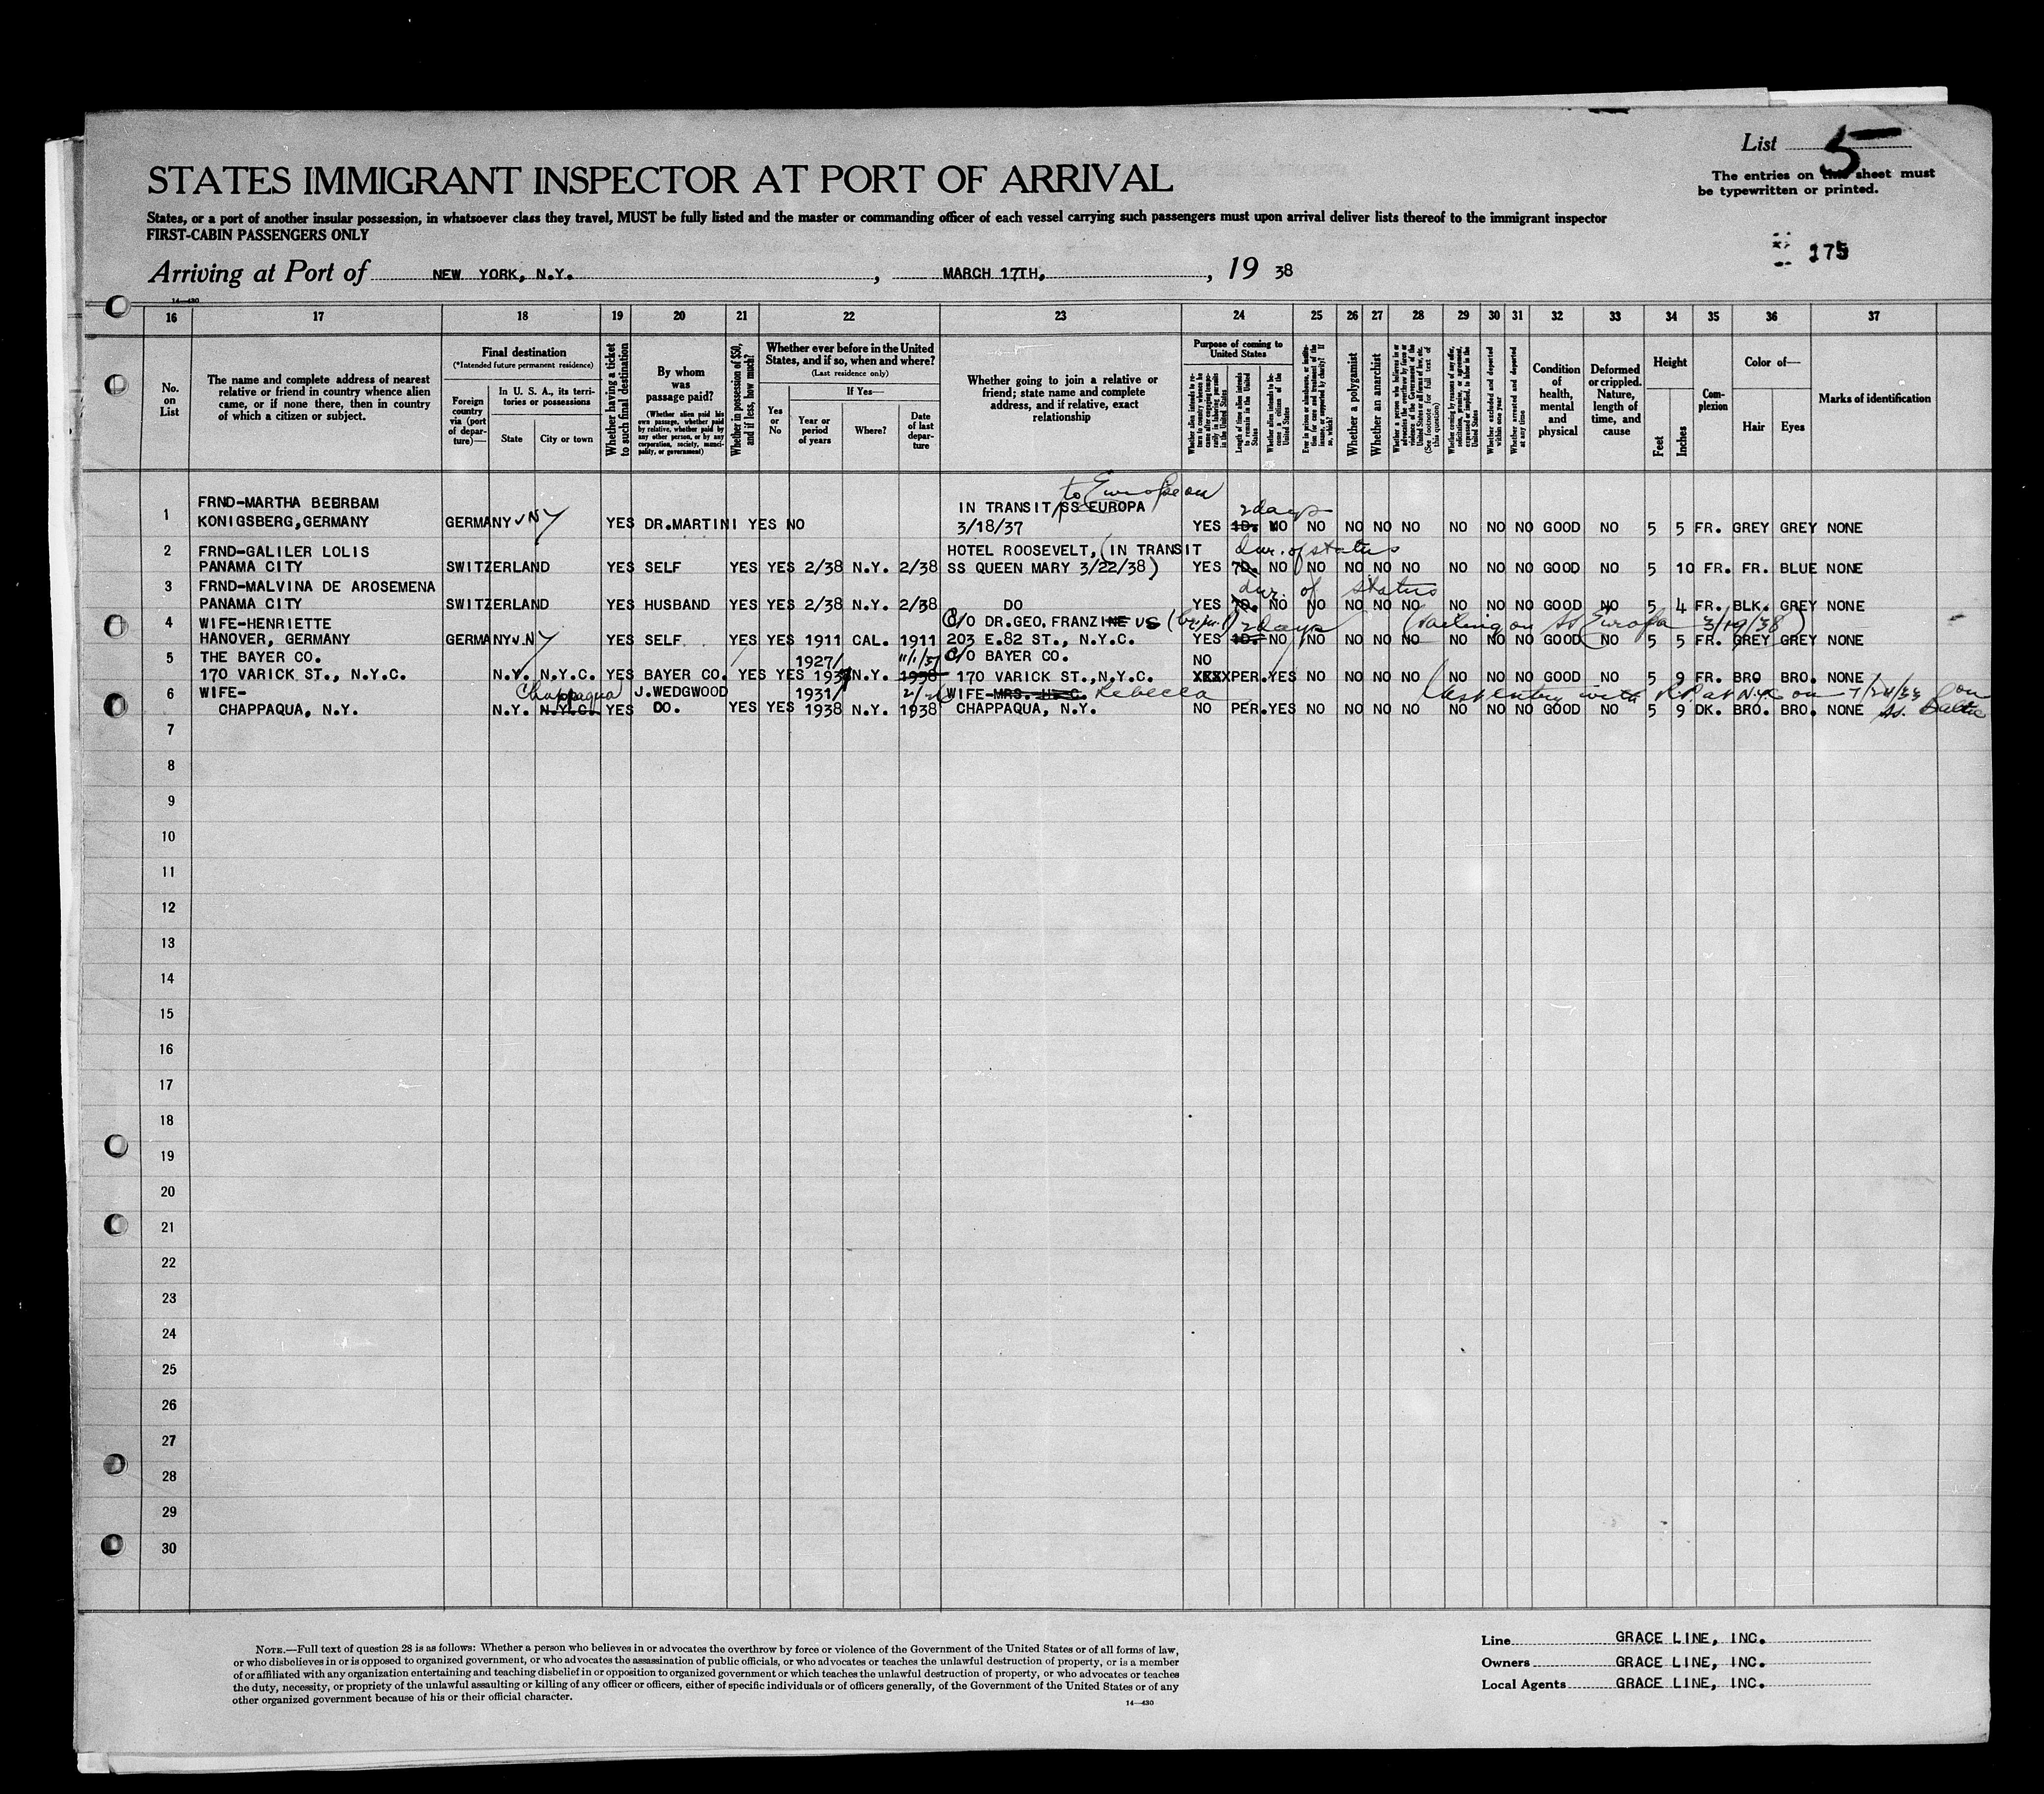 List 5
The entries on this sheet must
be typewritten or printed.
STATES IMMIGRANT INSPECTOR AT PORT OF ARRIVAL
States, or a port of another insular possession, in whatsoever class they travel, MUST be fully listed and the master or commanding officer of each vessel carrying such passengers must upon arrival deliver lists thereof to the immigrant inspector
FIRST-CABIN PASSENGERS ONLY
175
Arriving at Port of NEW YORK, N.Y. , MARCH 17TH, , 19 38
14—430
16 17 18 19 20 21 22 23 24 25 26 27 28 29 30 31 32 33 34 35 36 37
No. on List
The name and complete address of nearest relative or friend in country whence alien came, or if none there, then in country of which a citizen or subject.
Final destination
(*Intended future permanent residence)
Foreign country via (port of departure)—
In U. S. A., its territories or possessions
State
City or town
Whether having a ticket to such final destination
By whom was passage paid?
(Whether alien paid his own passage, whether paid by relative, whether paid by any other person, or by any corporation, society, municipality, or government)
Whether in possession of $50, and if less, how much?
Whether ever before in the United States, and if so, when and where?
(Last residence only)
Yes or No
If Yes—
Year or period of years
Where?
Date of last departure
Whether going to join a relative or friend; state name and complete address, and if relative, exact relationship
Purpose of coming to United States
Length of time alien intends to remain in the United States
Whether alien intends to become a citizen of the United States
Whether a polygamist
Whether an anarchist
Whether excluded and deported within one year
Whether arrested and deported at any time
Condition of health, mental and physical
Deformed or crippled. Nature, length of time, and cause
Height
Feet
Inches
Complexion
Color of—
Hair
Eyes
Marks of identification
to Europe on
1 FRND-MARTHA BEERBAM IN TRANSIT/SS EUROPA 2 days
KONIGSBERG, GERMANY GERMANY v NY YES DR. MARTINI YES NO 3/18/37 YES 1D. NO NO NO NO NO NO NO NO GOOD NO 5 5 FR. GREY GREY NONE
2 FRND-GALILER LOLIS HOTEL ROOSEVELT, (IN TRANSIT dur. of status
PANAMA CITY SWITZERLAND YES SELF YES YES 2/38 N.Y. 2/38 SS QUEEN MARY 3/22/38) YES 7D. NO NO NO NO NO NO NO NO GOOD NO 5 10 FR. FR. BLUE NONE
3 FRND-MALVINA DE AROSEMENA dur. of status
PANAMA CITY SWITZERLAND YES HUSBAND YES YES 2/38 N.Y. 2/38 DO YES 7D. NO NO NO NO NO NO NO NO GOOD NO 5 4 FR. BLK. GREY NONE
4 WIFE-HENRIETTE C/O DR. GEO. FRANZINE US 2 days (Sailing on SS Europa 3/19/38)
HANOVER, GERMANY GERMANY v. NY YES SELF YES YES 1911 CAL. 1911 203 E.82 ST., N.Y.C. YES 1D. NO NO NO NO NO NO NO NO GOOD NO 5 5 FR. GREY GREY NONE
5 THE BAYER CO. 1927/ 11/1/37 C/O BAYER CO. NO
170 VARICK ST., N.Y.C. N.Y. N.Y.C. YES BAYER CO. YES YES 1937 N.Y. 1938 170 VARICK ST., N.Y.C. XXXX PER. YES NO NO NO NO NO NO NO GOOD NO 5 9 FR. BRO BRO. NONE
6 WIFE- Chappaqua J. WEDGWOOD 1931/ WIFE-MRS. H. C. Rebecca Last entry with R.P. at N.Y. on 7/24/33 on
CHAPPAQUA, N.Y. N.Y. N.Y.C. YES DO. YES YES 1938 N.Y. 1938 CHAPPAQUA, N.Y. NO PER. YES NO NO NO NO NO NO NO GOOD NO 5 9 DK. BRO. BRO. NONE ss. Baltic
7
8
9
10
11
12
13
14
15
16
17
18
19
20
21
22
23
24
25
26
27
28
29
30
NOTE.—Full text of question 28 is as follows: Whether a person who believes in or advocates the overthrow by force or violence of the Government of the United States or of all forms of law,
or who disbelieves in or is opposed to organized government, or who advocates the assassination of public officials, or who advocates or teaches the unlawful destruction of property, or is a member
of or affiliated with any organization entertaining and teaching disbelief in or opposition to organized government or which teaches the unlawful destruction of property, or who advocates or teaches
the duty, necessity, or propriety of the unlawful assaulting or killing of any officer or officers, either of specific individuals or of officers generally, of the Government of the United States or of any
other organized government because of his or their official character.
14—430
Line GRACE LINE, INC.
Owners GRACE LINE, INC.
Local Agents GRACE LINE, INC.